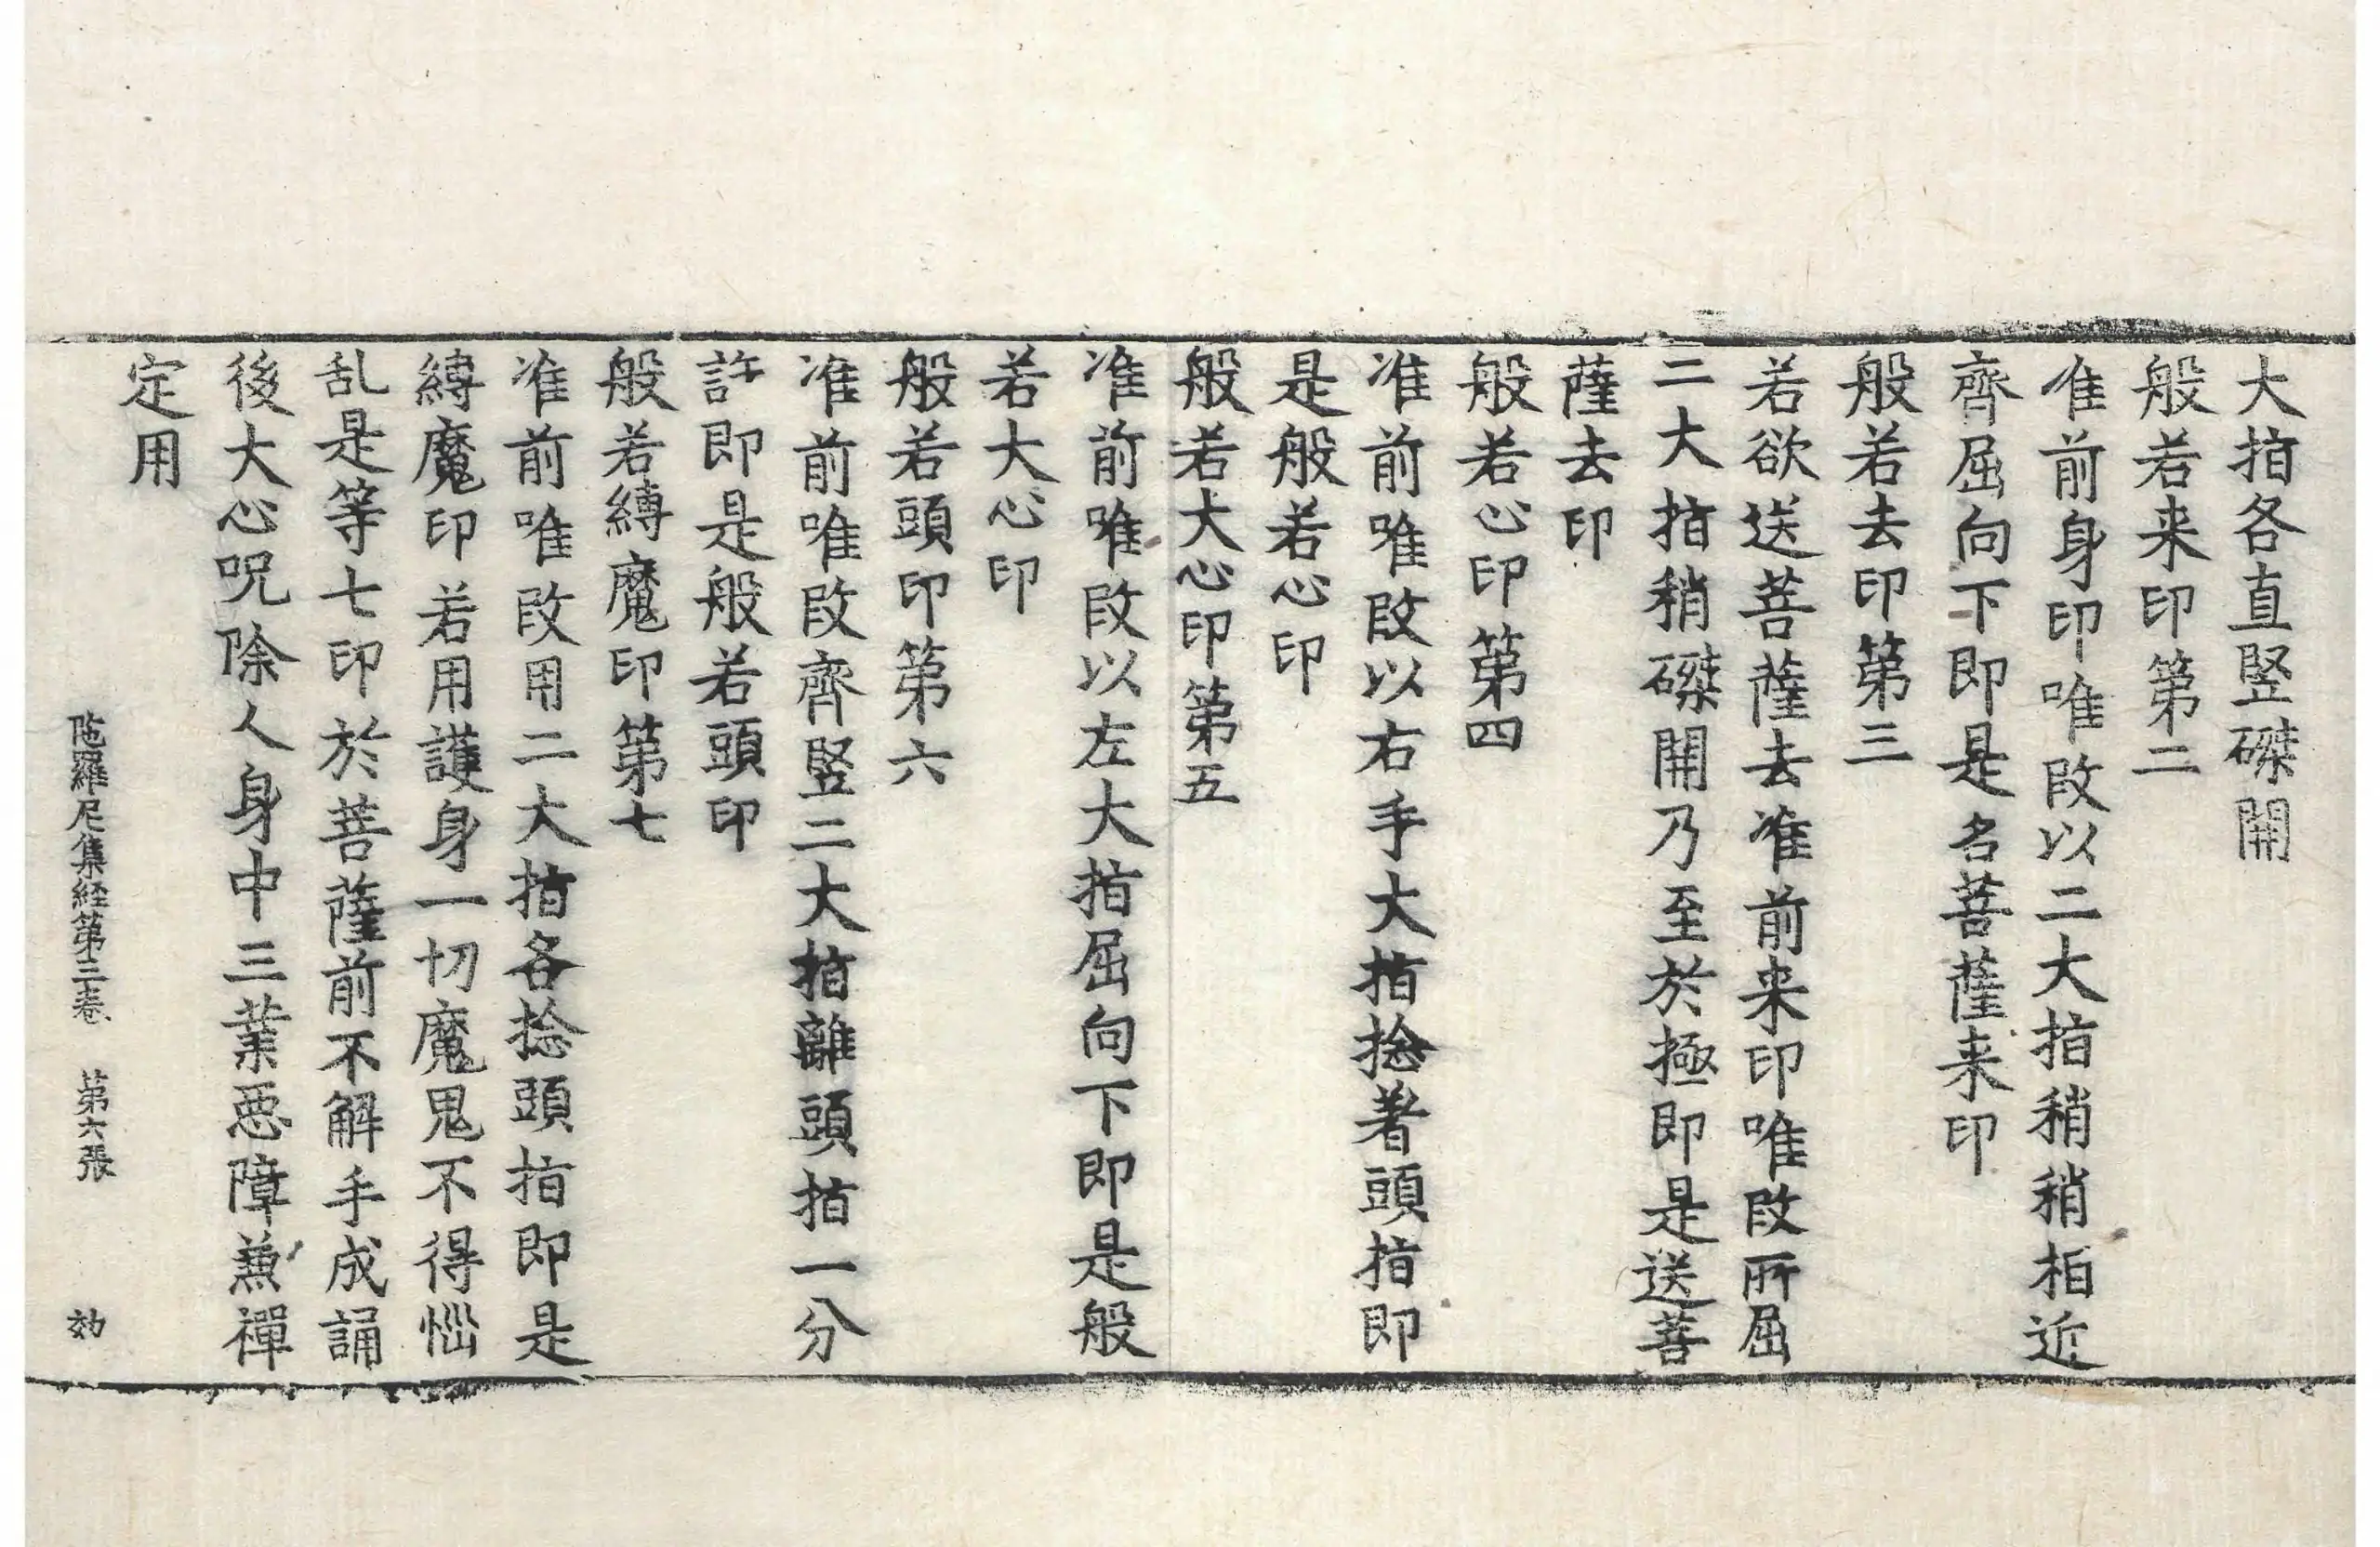 大指各直竪磔開
般若来印第二
准前身印唯改以二大指稍稍相近
齊屈向下即是名菩薩来印
般若去印第三
若欲送菩薩去准前来印唯改所屈
二大指稍磔開乃至於極即是送菩
薩去印
般若心印第四
准前唯改以右手大指捻著頭指即
是般若心印
般若大心印第五
准前唯改以左大指屈向下即是般
若大心印
般若頭印第六
准前唯改齊竪二大指離頭指一分
許即是般若頭印
般若縛魔印第七
准前唯改用二大指各捻頭指即是
縛魔印若用護身一切魔鬼不得惱
乱是等七印於菩薩前不解手成誦
後大心呪除人身中三業惡障兼禪
定用
陁羅尼集経第三卷 第六張 効